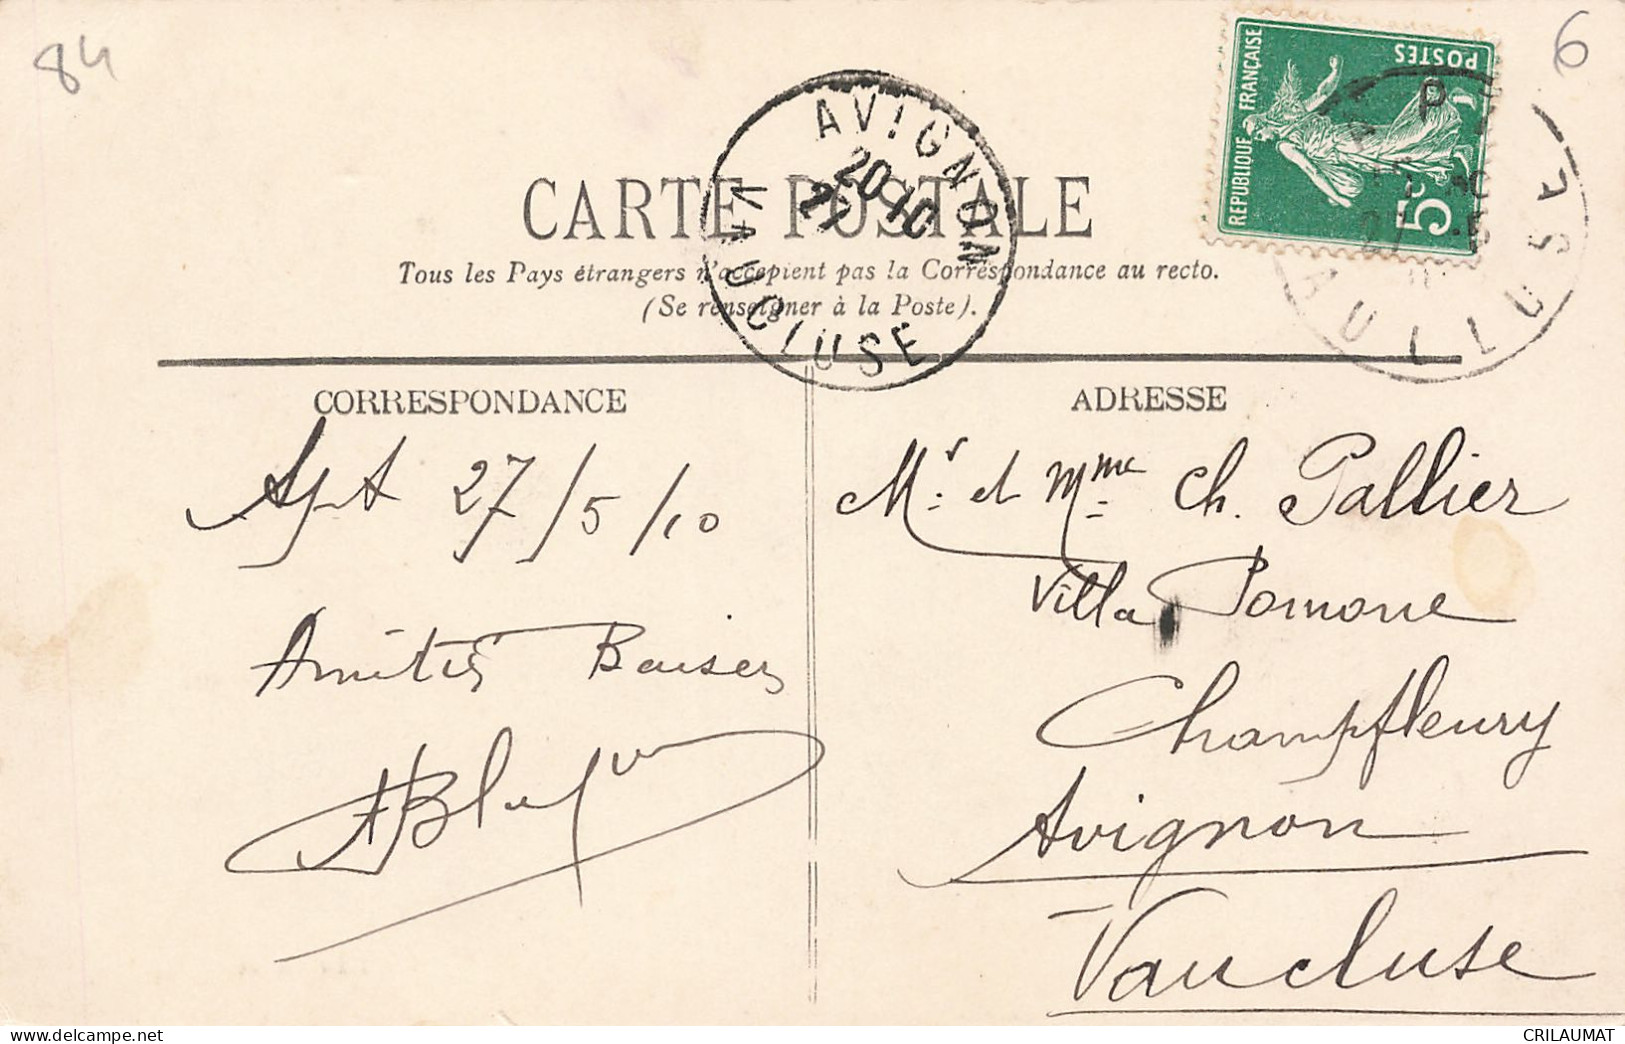 84
6
REPUBLIQUE FRANÇAISE
POSTES
5c
AVIGNON
20-10
27
VAUCLUSE
CARTE POSTALE
Tous les Pays étrangers n'acceptent pas la Correspondance au recto.
(Se renseigner à la Poste).
CORRESPONDANCE
Apt 27/5/10
Amitiés Baisers
ADRESSE
Mr. et Mme Ch. Pallier
Villa Pomone
Champfleury
Avignon
Vaucluse
CRILAUMAT